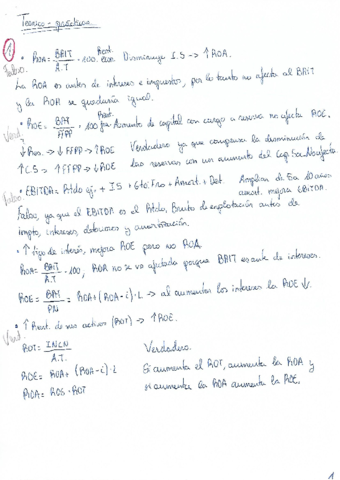 Teórico - práctica
1
• ROA = BAIT / A.T · 100. Disminuye I.S -> ↑ROA.
Falso.
La ROA es antes de intereses e impuestos, por lo tanto no afecta al BAIT
y la ROA se quedaría igual.
• ROE = / FFPP · 100 Aumento de capital con cargo a reserva no afecta ROE.
Verd.
↓ Res. -> ↓ FFPP -> ↑ROE Verdadero ya que compensa la disminución de
↑ C.S -> ↑ FFPP -> ↓ROE las reservas con un aumento del Cap. Soc. No afecta
• EBITDA = Rtdo ej. + I S + Gto. Fro + Amort + Det. Amplían de 5 a 10 años
Falso. amort. mejora EBITDA.
Falso, ya que el EBITDA es el Rtdo. Bruto de explotación antes de
impto, intereses, deterioros y amortización.
• ↑ tipo de interés, mejora ROE pero no ROA
ROA = BAIT / A.T · 100, ROA no se ve afectada porque BAIT es ante de intereses.
ROE = / PN = ROA + (ROA - i) · L -> al aumentar los intereses la ROE ↓.
• ↑ Rot. de sus activos (ROT) -> ↑ROE.
Verd.
ROT = INCN / A.T. Verdadero.
ROE = ROA + (ROA - i) · L Si aumenta el ROT, aumenta la ROA y
ROA = ROS · ROT si aumenta la ROA aumenta la ROE.
1